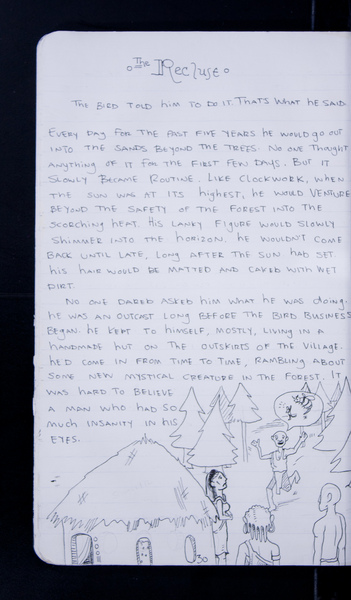 The Recluse
The bird told him to do it. That's what he said.
Every day for the past five years he would go out
into the sands beyond the trees. No one thought
anything of it for the first few days. But it
slowly became routine. Like clockwork, when
the sun was at its highest, he would venture
beyond the safety of the forest into the
scorching heat. His lanky figure would slowly
shimmer into the horizon. He wouldn't come
back until late, long after the sun had set
his hair would be matted and caked with wet
dirt.
No one dared asked him what he was doing.
He was an outcast long before the bird business
began. He kept to himself, mostly, living in a
handmade hut on the outskirts of the village.
He'd come in from time to time, rambling about
some new mystical creature in the forest. It
was hard to believe
a man who had so
much insanity in his
eyes.
30